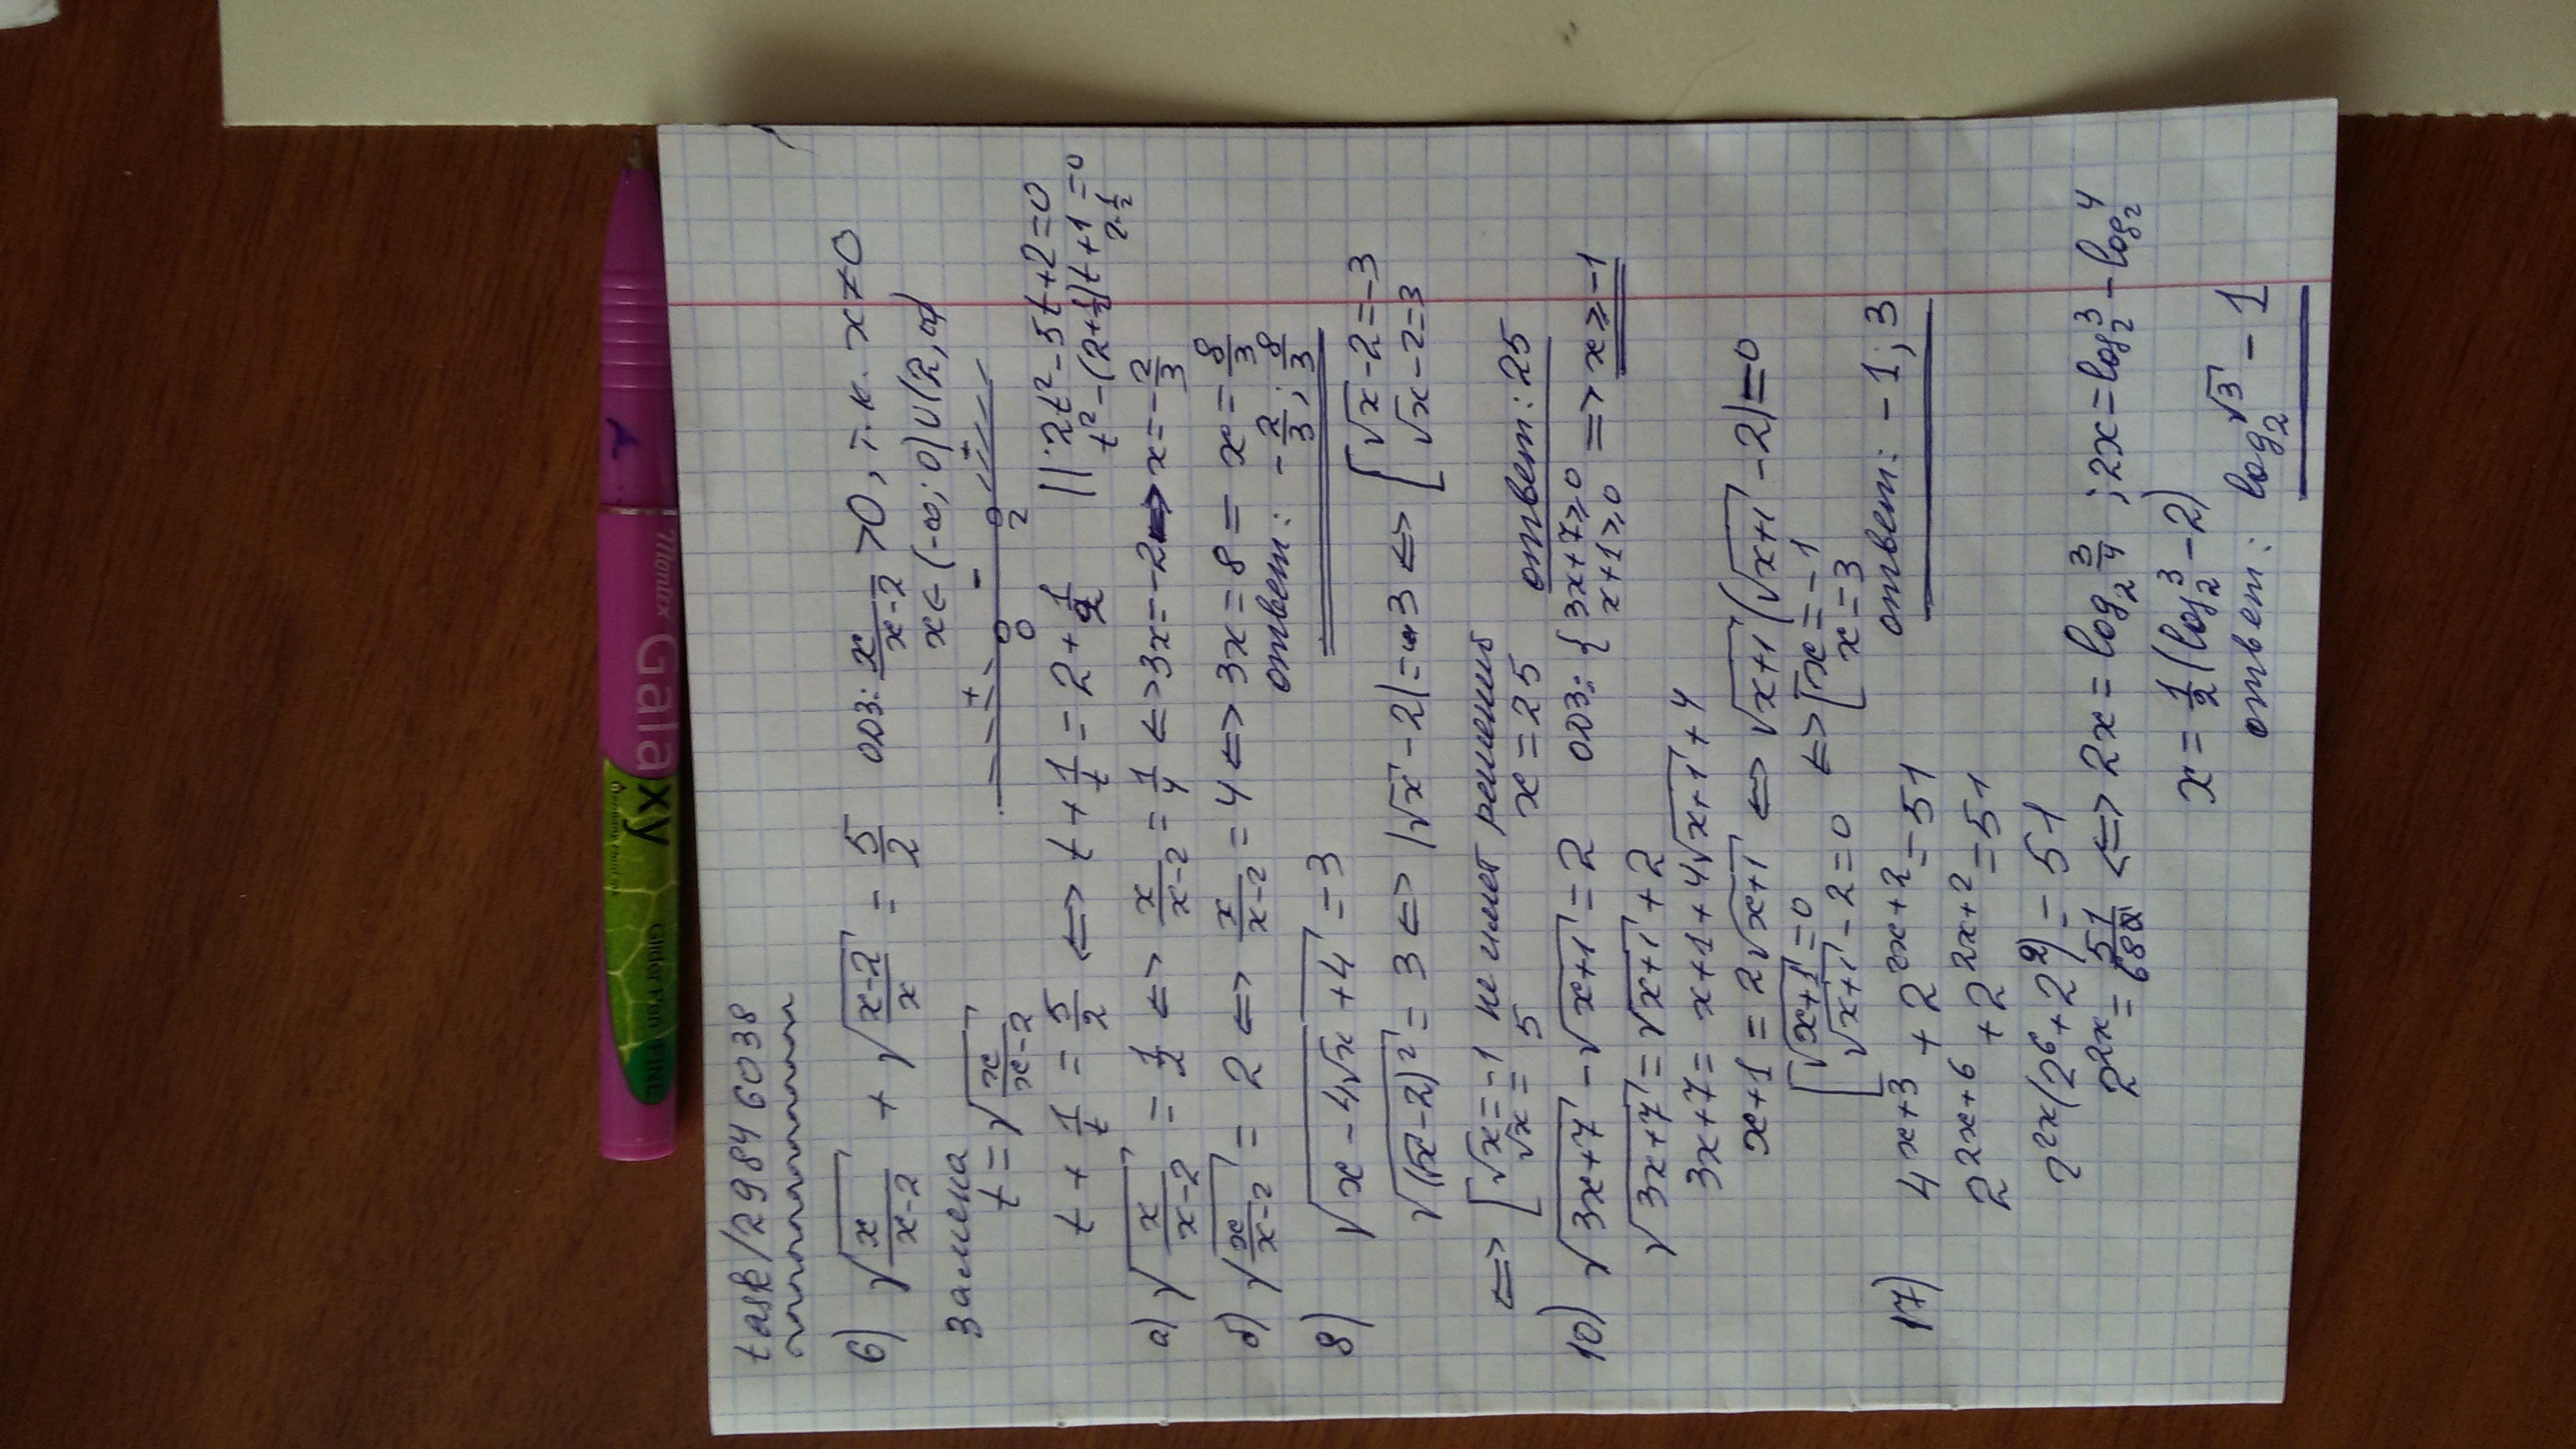 task/29846038
6) √(x/(x-2)) + √((x-2)/x) = 5/2 ОДЗ: x/(x-2) >0, т.к. x≠0
x∈(-∞;0)∪(2,∞)
Замена
t = √(x/(x-2))
+ - +
0 2
t + 1/t = 5/2 <=> t + 1/t = 2 + 1/2 ||·2t²-5t+2=0
t²-(2+1/2)t+1=0
2·1/2
а) √(x/(x-2)) = 1/2 <=> x/(x-2) = 1/4 <=> 3x=-2 <=> x=-2/3
б) √(x/(x-2)) = 2 <=> x/(x-2) = 4 <=> 3x=8 = x=8/3
ответ: -2/3; 8/3
8) √(x-4√x+4) = 3
√((√x-2)²) = 3 <=> |√x-2|=3 <=> [√x-2=-3
√x-2=3
<=> [√x=-1 не имеет решения
√x=5 x=25 ответ: 25
10) √(3x+7) - √(x+1) = 2 ОДЗ: {3x+7≥0
x+1≥0 => x≥-1
√(3x+7) = √(x+1) + 2
3x+7 = x+1+4√(x+1)+4
x+1 = 2√(x+1) <=> √(x+1)(√(x+1)-2)=0
[√(x+1)=0
√(x+1)-2=0 <=> [x=-1
x=3
ответ: -1; 3
17) 4^(x+3) + 2^(2x+2) = 51
2^(2x+6) + 2^(2x+2) = 51
2^(2x)(2^6+2^2) = 51
2^(2x) = 51/68 <=> 2x = log₂ 3/4 ; 2x = log₂ 3 - log₂ 4
x = 1/2(log₂ 3 - 2)
ответ: log₂ √3 - 1
Montex
Gala
xy
Glider Pen
FINE